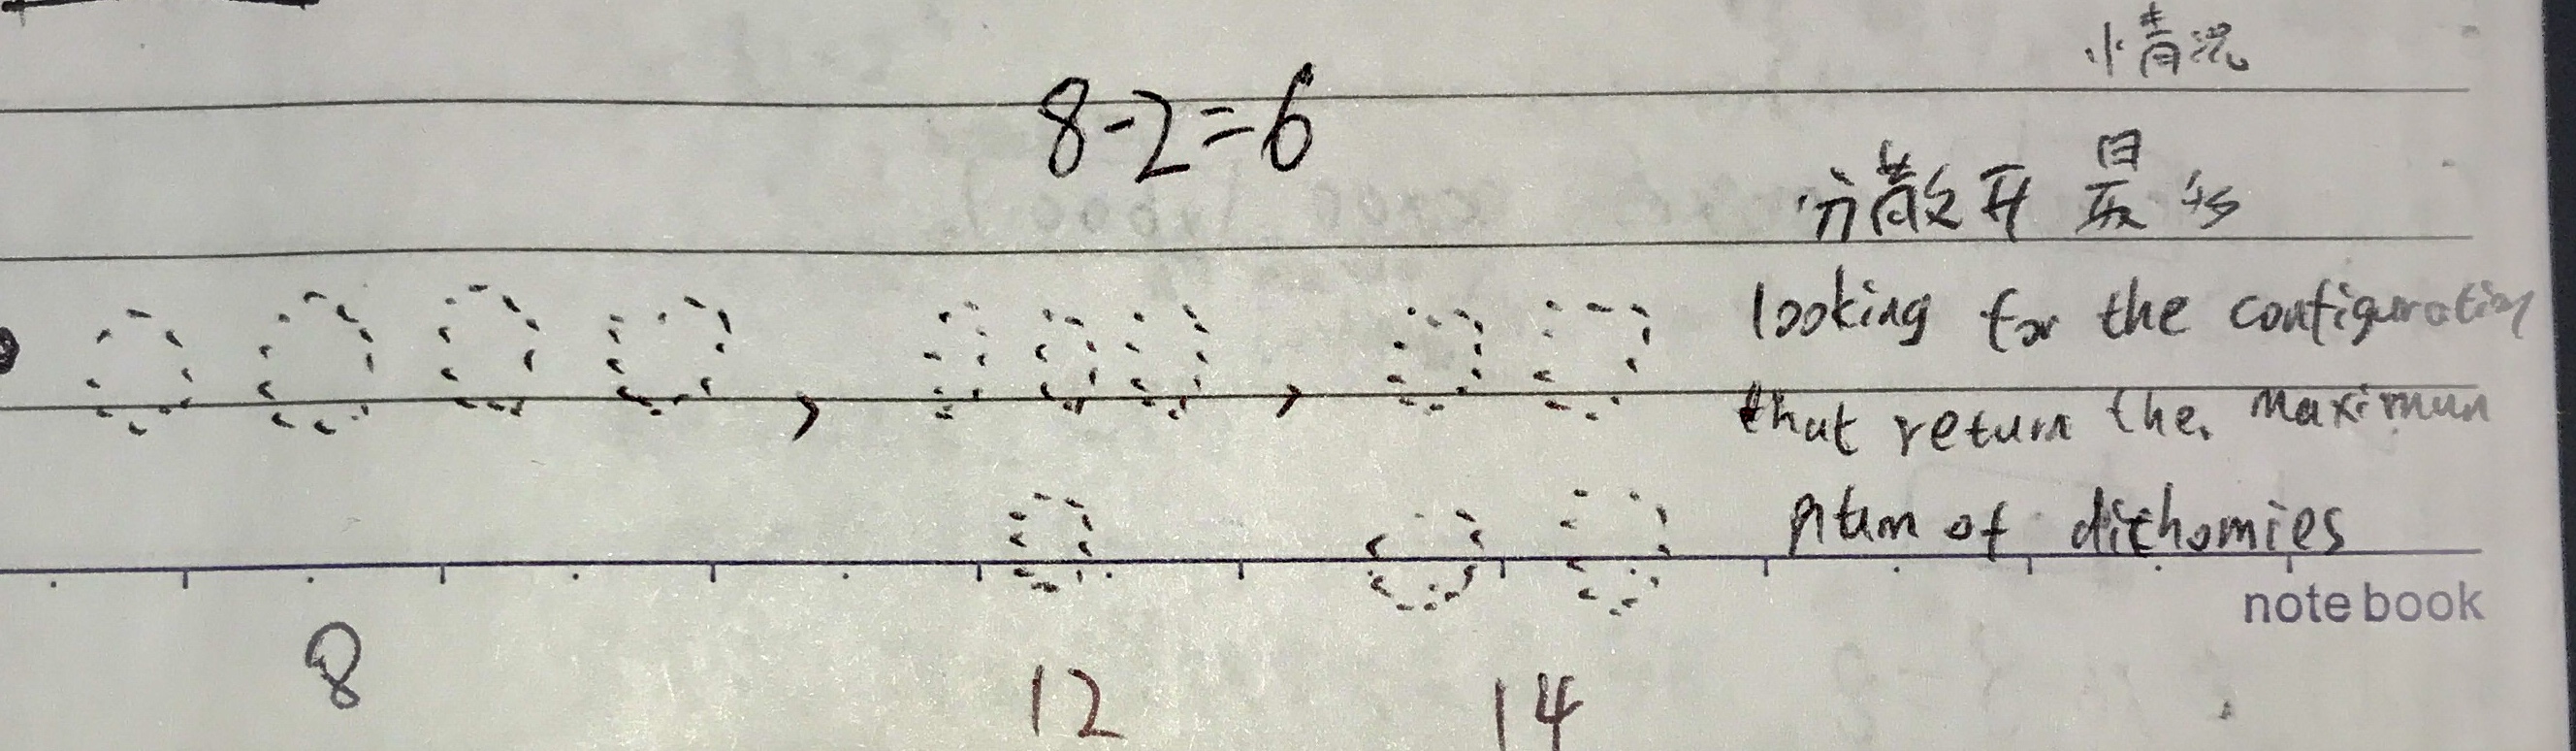 情况
8-2=6
分散开 最多
looking for the configuration
that return the maximum
of dichomies
notebook
8 12 14